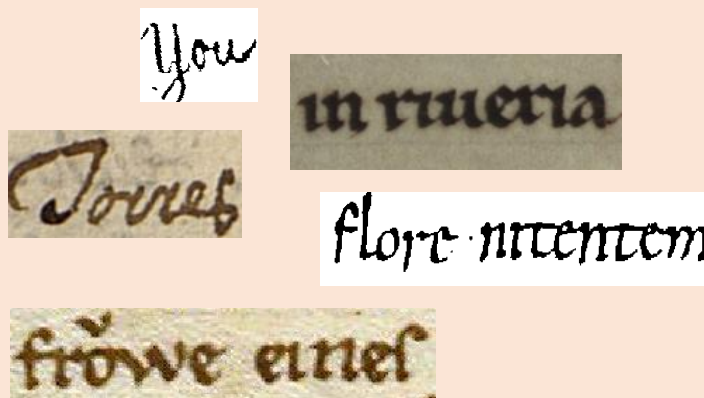 you
in riueria
Torres
flore · nitentem
frǒwe eineſ